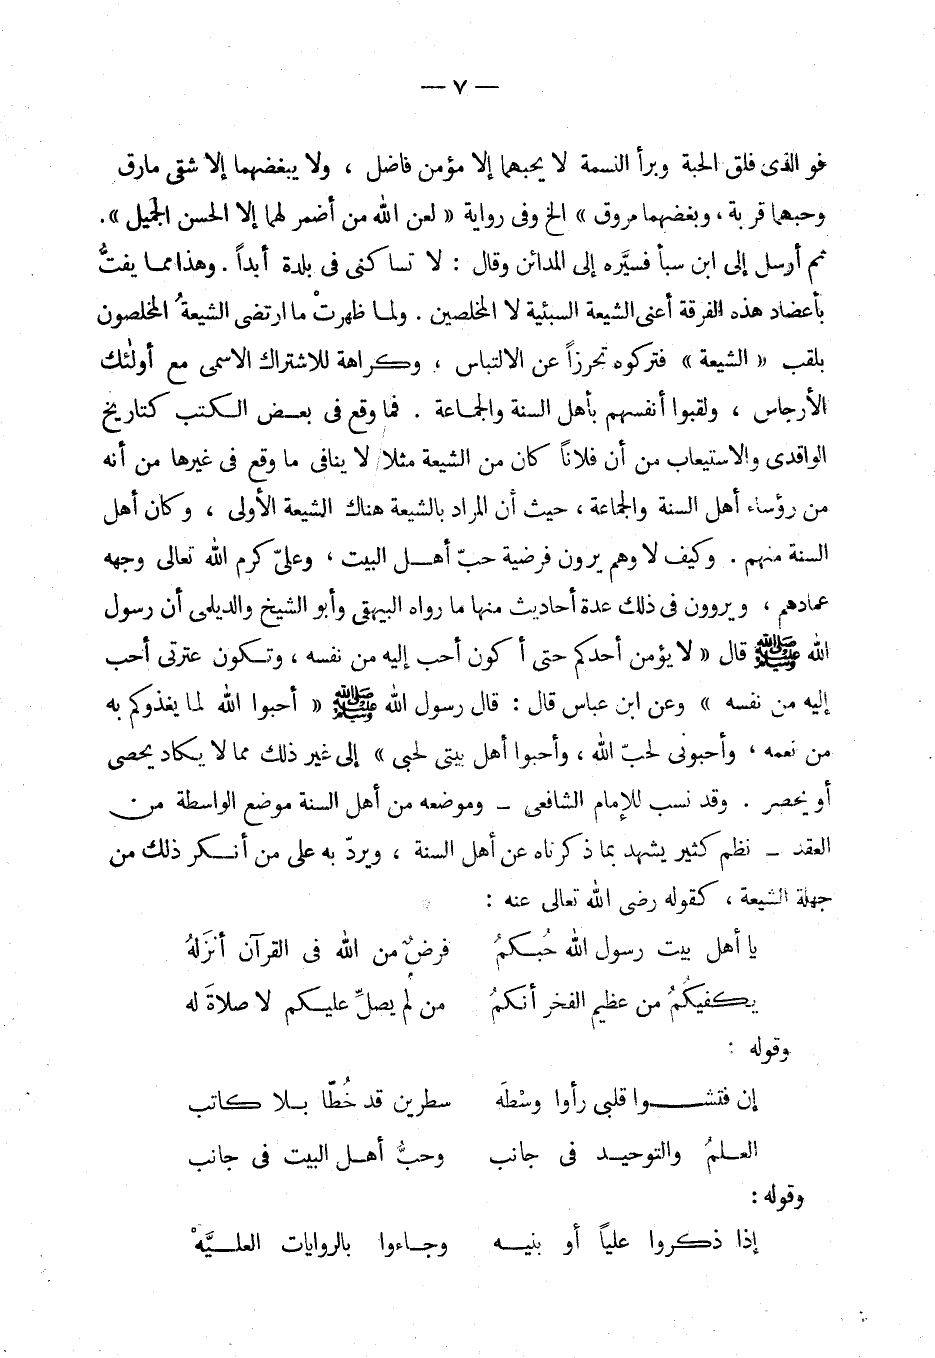 — ٧ —
فو الذى فلق الحبة وبرأ النسمة لا يحبهما إلا مؤمن فاضل ، ولا يبغضهما إلا شقى مارق
وحبهما قربة ، وبغضهما مروق » الخ وفى رواية « لعن الله من أضمر لهما إلا الحسن الجميل ».
ثم أرسل إلى ابن سبأ فسيَّره إلى المدائن وقال : لا تساكنى فى بلدة أبداً . وهذا مما يفتُّ
بأعضاد هذه الفرقة أعنى الشيعة السبئية لا المخلصين . ولما ظهرتْ ما ارتضى الشيعةُ المخلصون
بلقب « الشيعة » فتركوه تحرزاً عن الالتباس ، وكراهة للاشتراك الاسمى مع أولئك
الأرجاس ، ولقبوا أنفسهم بأهل السنة والجماعة . فما وقع فى بعض الكتب كتاريخ
الواقدى والاستيعاب من أن فلاناً كان من الشيعة مثلا لا ينافى ما وقع فى غيرها من أنه
من رؤساء أهل السنة والجماعة ، حيث أن المراد بالشيعة هناك الشيعة الأولى ، وكان أهل
السنة منهم . وكيف لا وهم يرون فرضية حبّ أهل البيت ، وعلىّ كرم الله تعالى وجهه
عمادهم ، ويروون فى ذلك عدة أحاديث منها ما رواه البيهقى وأبو الشيخ والديلمى أن رسول
الله ﷺ قال « لا يؤمن أحدكم حتى أكون أحب إليه من نفسه ، وتكون عترتى أحب
إليه من نفسه » وعن ابن عباس قال : قال رسول الله ﷺ « أحبوا الله لما يغذوكم به
من نعمه ، وأحبونى لحبّ الله ، وأحبوا أهل بيتى لحبى » إلى غير ذلك مما لا يكاد يحصى
أو يحصر . وقد نسب للإمام الشافعى – وموضعه من أهل السنة موضع الواسطة من
العقد – نظم كثير يشهد بما ذكرناه عن أهل السنة ، ويردّ به على من أنكر ذلك من
جهلة الشيعة ، كقوله رضى الله تعالى عنه :
يا أهل بيت رسول الله حُبكمُ فرضٌ من الله فى القرآن أنزَلهُ
يكفيكمُ من عظيم الفخر أنكمُ من لم يصلِّ عليكم لا صلاةَ له
وقوله :
إن فتشوا قلبى رأوا وسْطَه سطرين قد خُطّا بلا كاتب
العلمُ والتوحيد فى جانب وحبُّ أهل البيت فى جانب
وقوله :
إذا ذكروا علياً أو بنيه وجاءوا بالروايات العليَّهْ